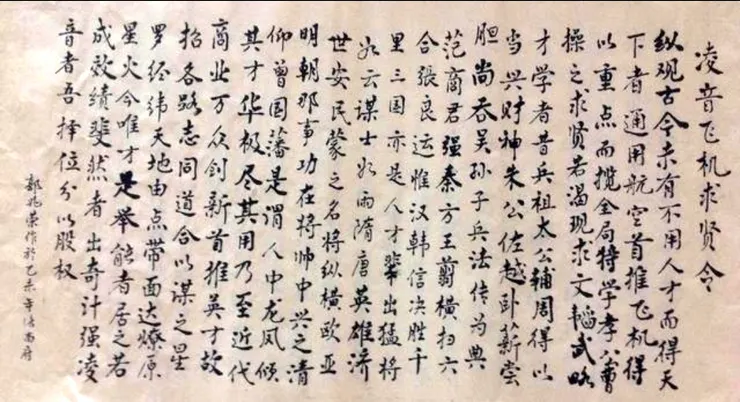 凌音飞机求贤令
纵观古今未有不用人才而得天
下者通用航空首推飞机得
以重点而揽全局特学孝公曹
操之求贤若渴现求文韬武略
才学者昔兵祖太公辅周得以
当兴财神朱公佐越卧薪尝
胆尚吞吴孙子兵法传为典
范商君强秦方王翦横扫六
合張良运惟汉韩信决胜千
里三国亦是人才辈出猛将
如云谋士如雨隋唐英雄济
世安民蒙之名将纵横欧亚
明朝那事功在将帅中兴之清
仰曾国藩是谓人中龙凤倾
其才华极尽其用乃至近代
商业万众创新首推英才故
招各路志同道合以谋之星
罗经纬天地由点带面达燎原
星火今唯才是举能者居之若
成效绩斐然者出奇计强凌
音者吾择位分以股权
荣作於乙未年西府